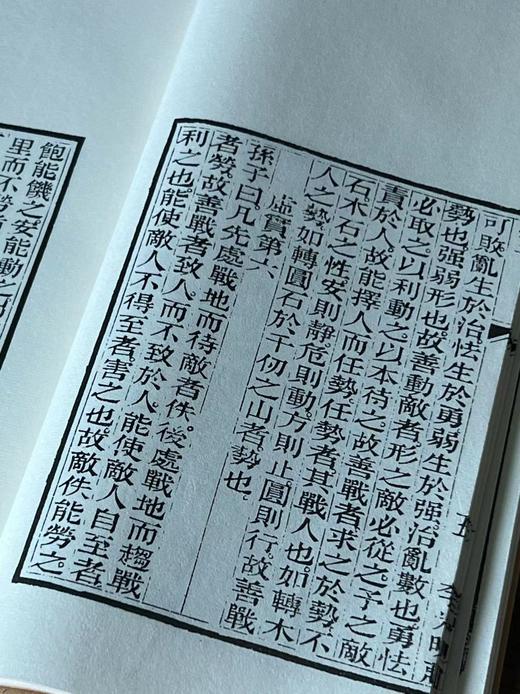 可敗亂生於治怯生於勇弱生於强治亂數也勇怯
勢也强弱形也故善動敵者形之敵必從之予之敵
必取之以利動之以本待之故善戰者求之於勢不
責於人故能擇人而任勢任勢者其戰人也如轉木
石木石之性安則靜危則動方則止圓則行故善戰
人之勢如轉圓石於千仞之山者勢也
虛實第六
孫子曰凡先處戰地而待敵者佚後處戰地而趨戰
者勞故善戰者致人而不致於人能使敵人自至者
利之也能使敵人不得至者害之也故敵佚能勞之
飽能饑之安能動之
里而不勞